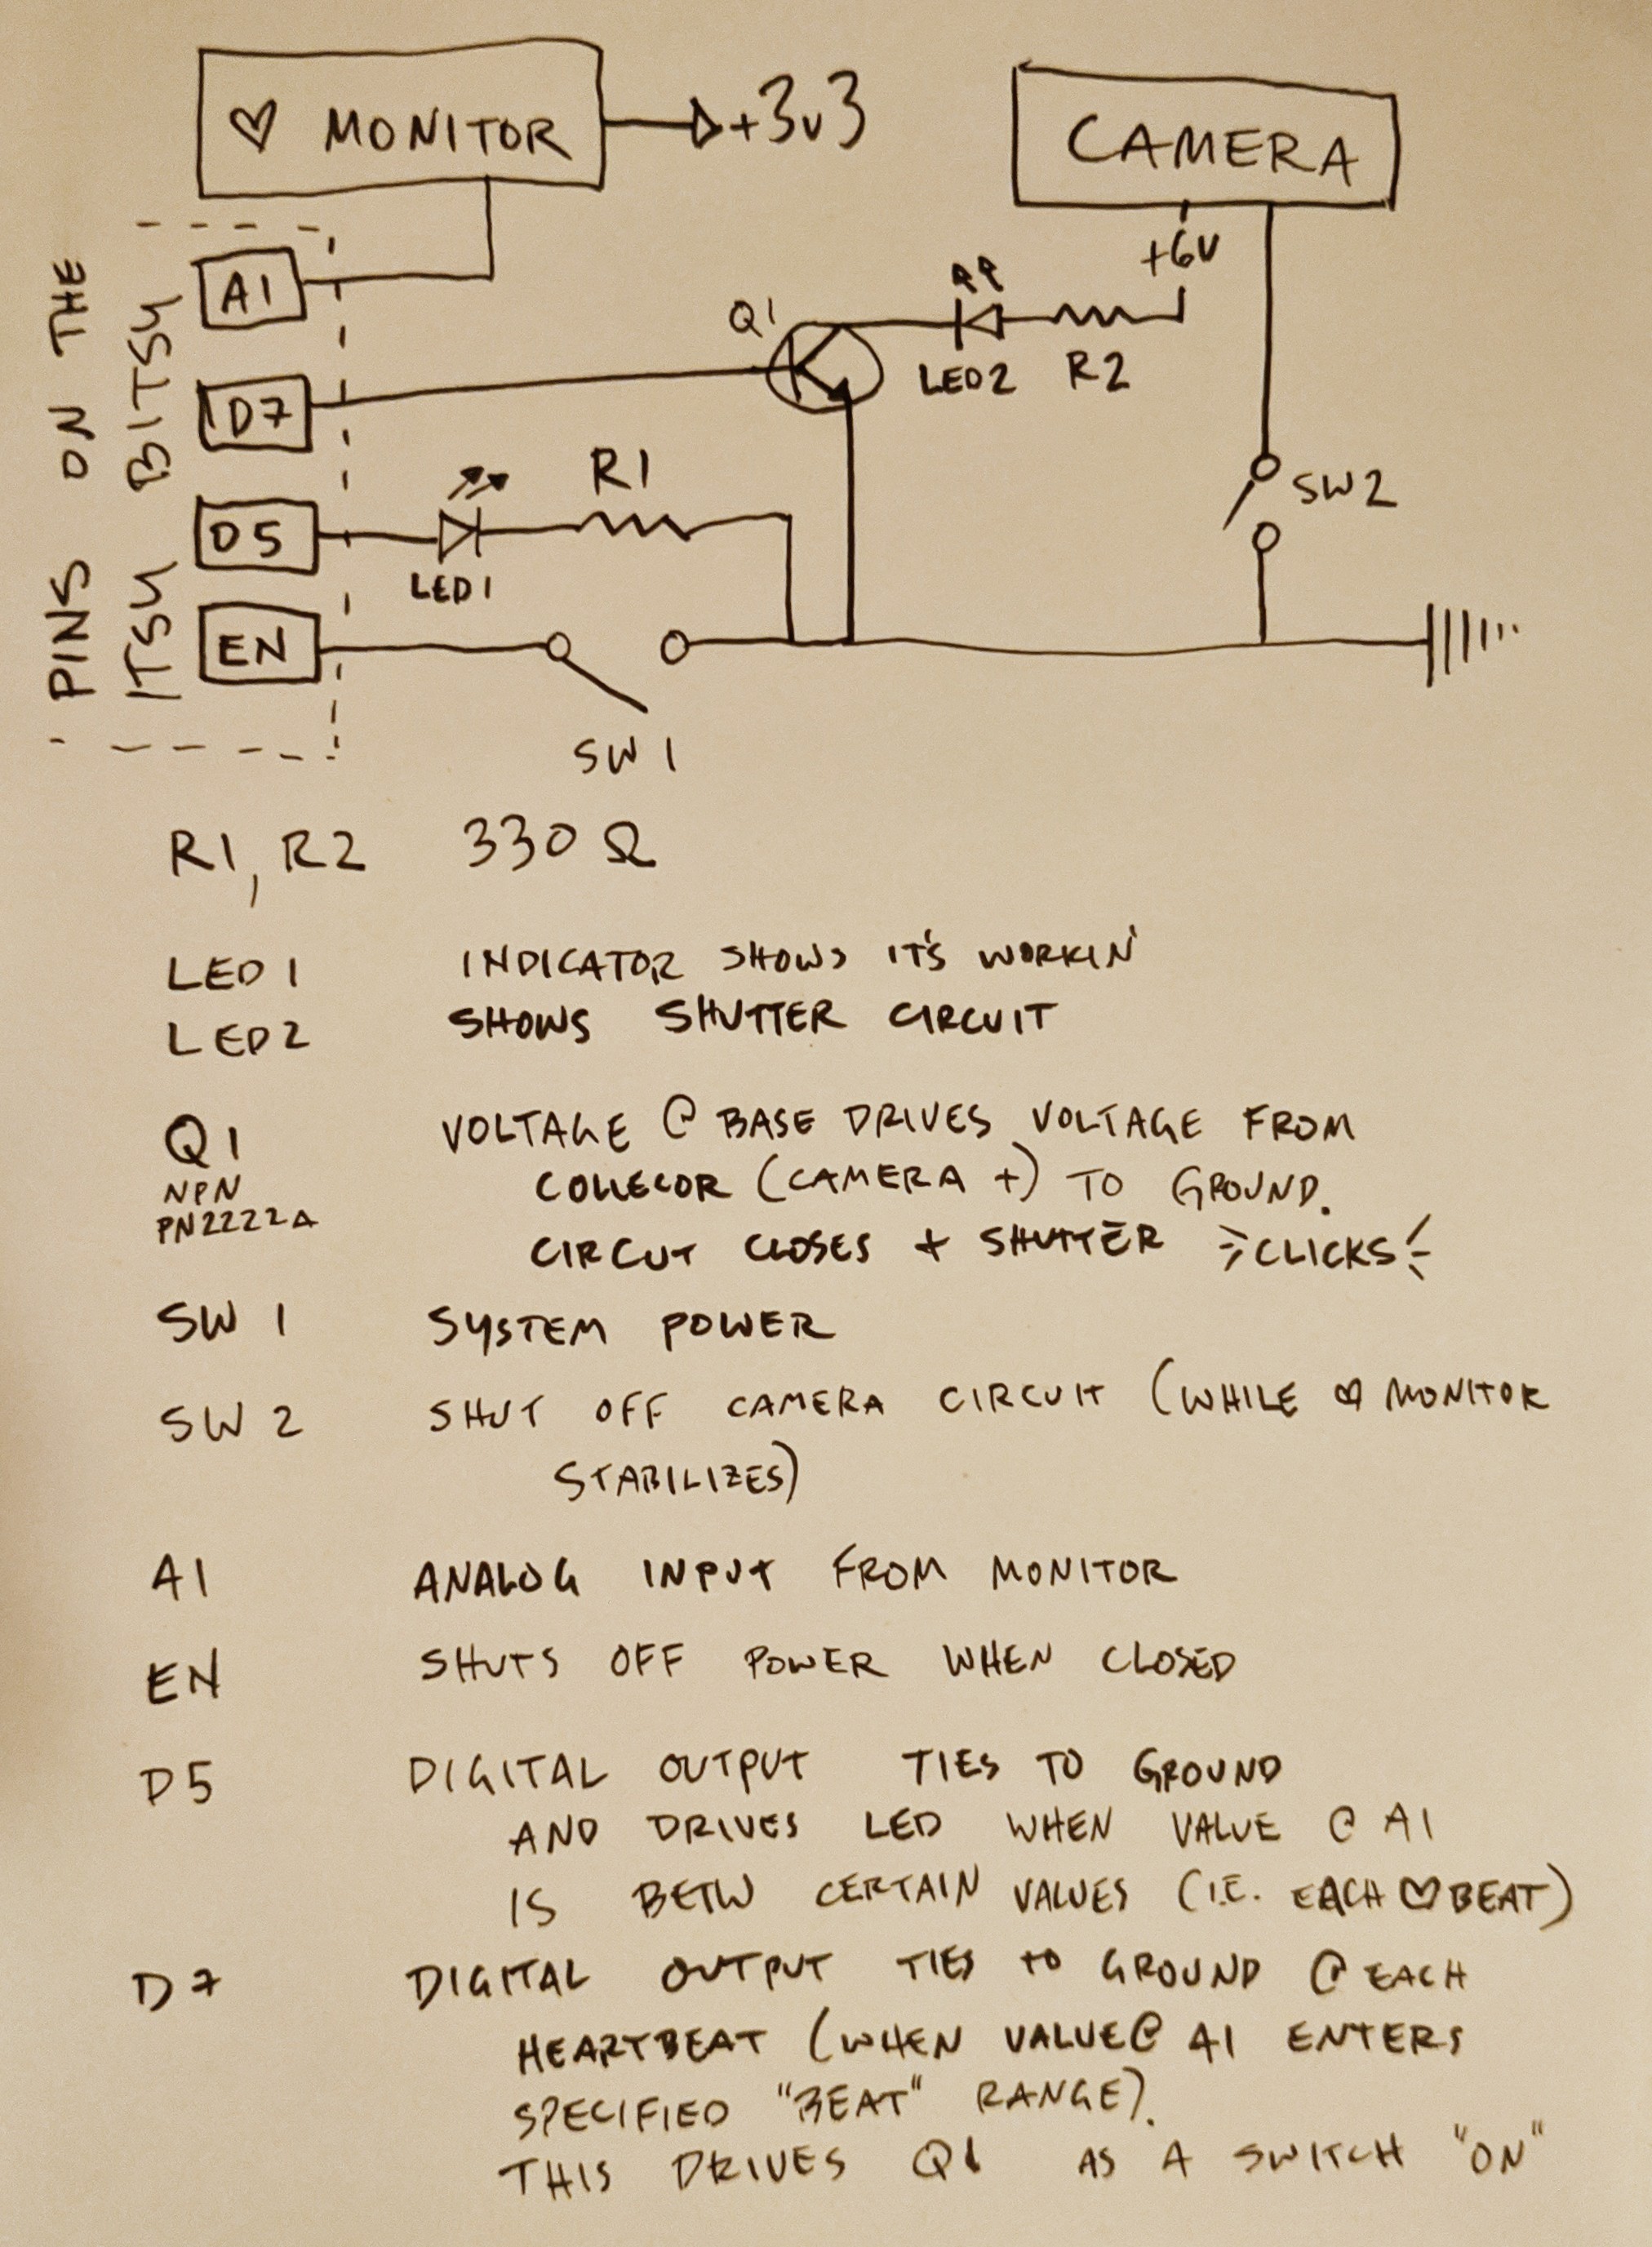 ♡ MONITOR
+3v3
CAMERA
+6V
PINS ON THE
ITSY BITSY
A1
Q1
D7
LED2
R2
R1
SW2
D5
LED1
EN
SW 1
R1, R2 330 Ω
LED 1 INDICATOR SHOWS IT'S WORKIN'
LED2 SHOWS SHUTTER CIRCUIT
Q1 VOLTAGE @ BASE DRIVES VOLTAGE FROM
NPN COLLECOR (CAMERA +) TO GROUND.
PN2222A
CIRCUT CLOSES + SHUTTER CLICKS
SW 1 SYSTEM POWER
SW 2 SHUT OFF CAMERA CIRCUIT (WHILE ♡ MONITOR
STABILIZES)
A1 ANALOG INPUT FROM MONITOR
EN SHUTS OFF POWER WHEN CLOSED
D5 DIGITAL OUTPUT TIES TO GROUND
AND DRIVES LED WHEN VALUE @ A1
IS BETW CERTAIN VALUES (I.E. EACH ♡ BEAT)
D7 DIGITAL OUTPUT TIES TO GROUND @ EACH
HEARTBEAT (WHEN VALUE @ A1 ENTERS
SPECIFIED "BEAT" RANGE).
THIS DRIVES Q1 AS A SWITCH "ON"